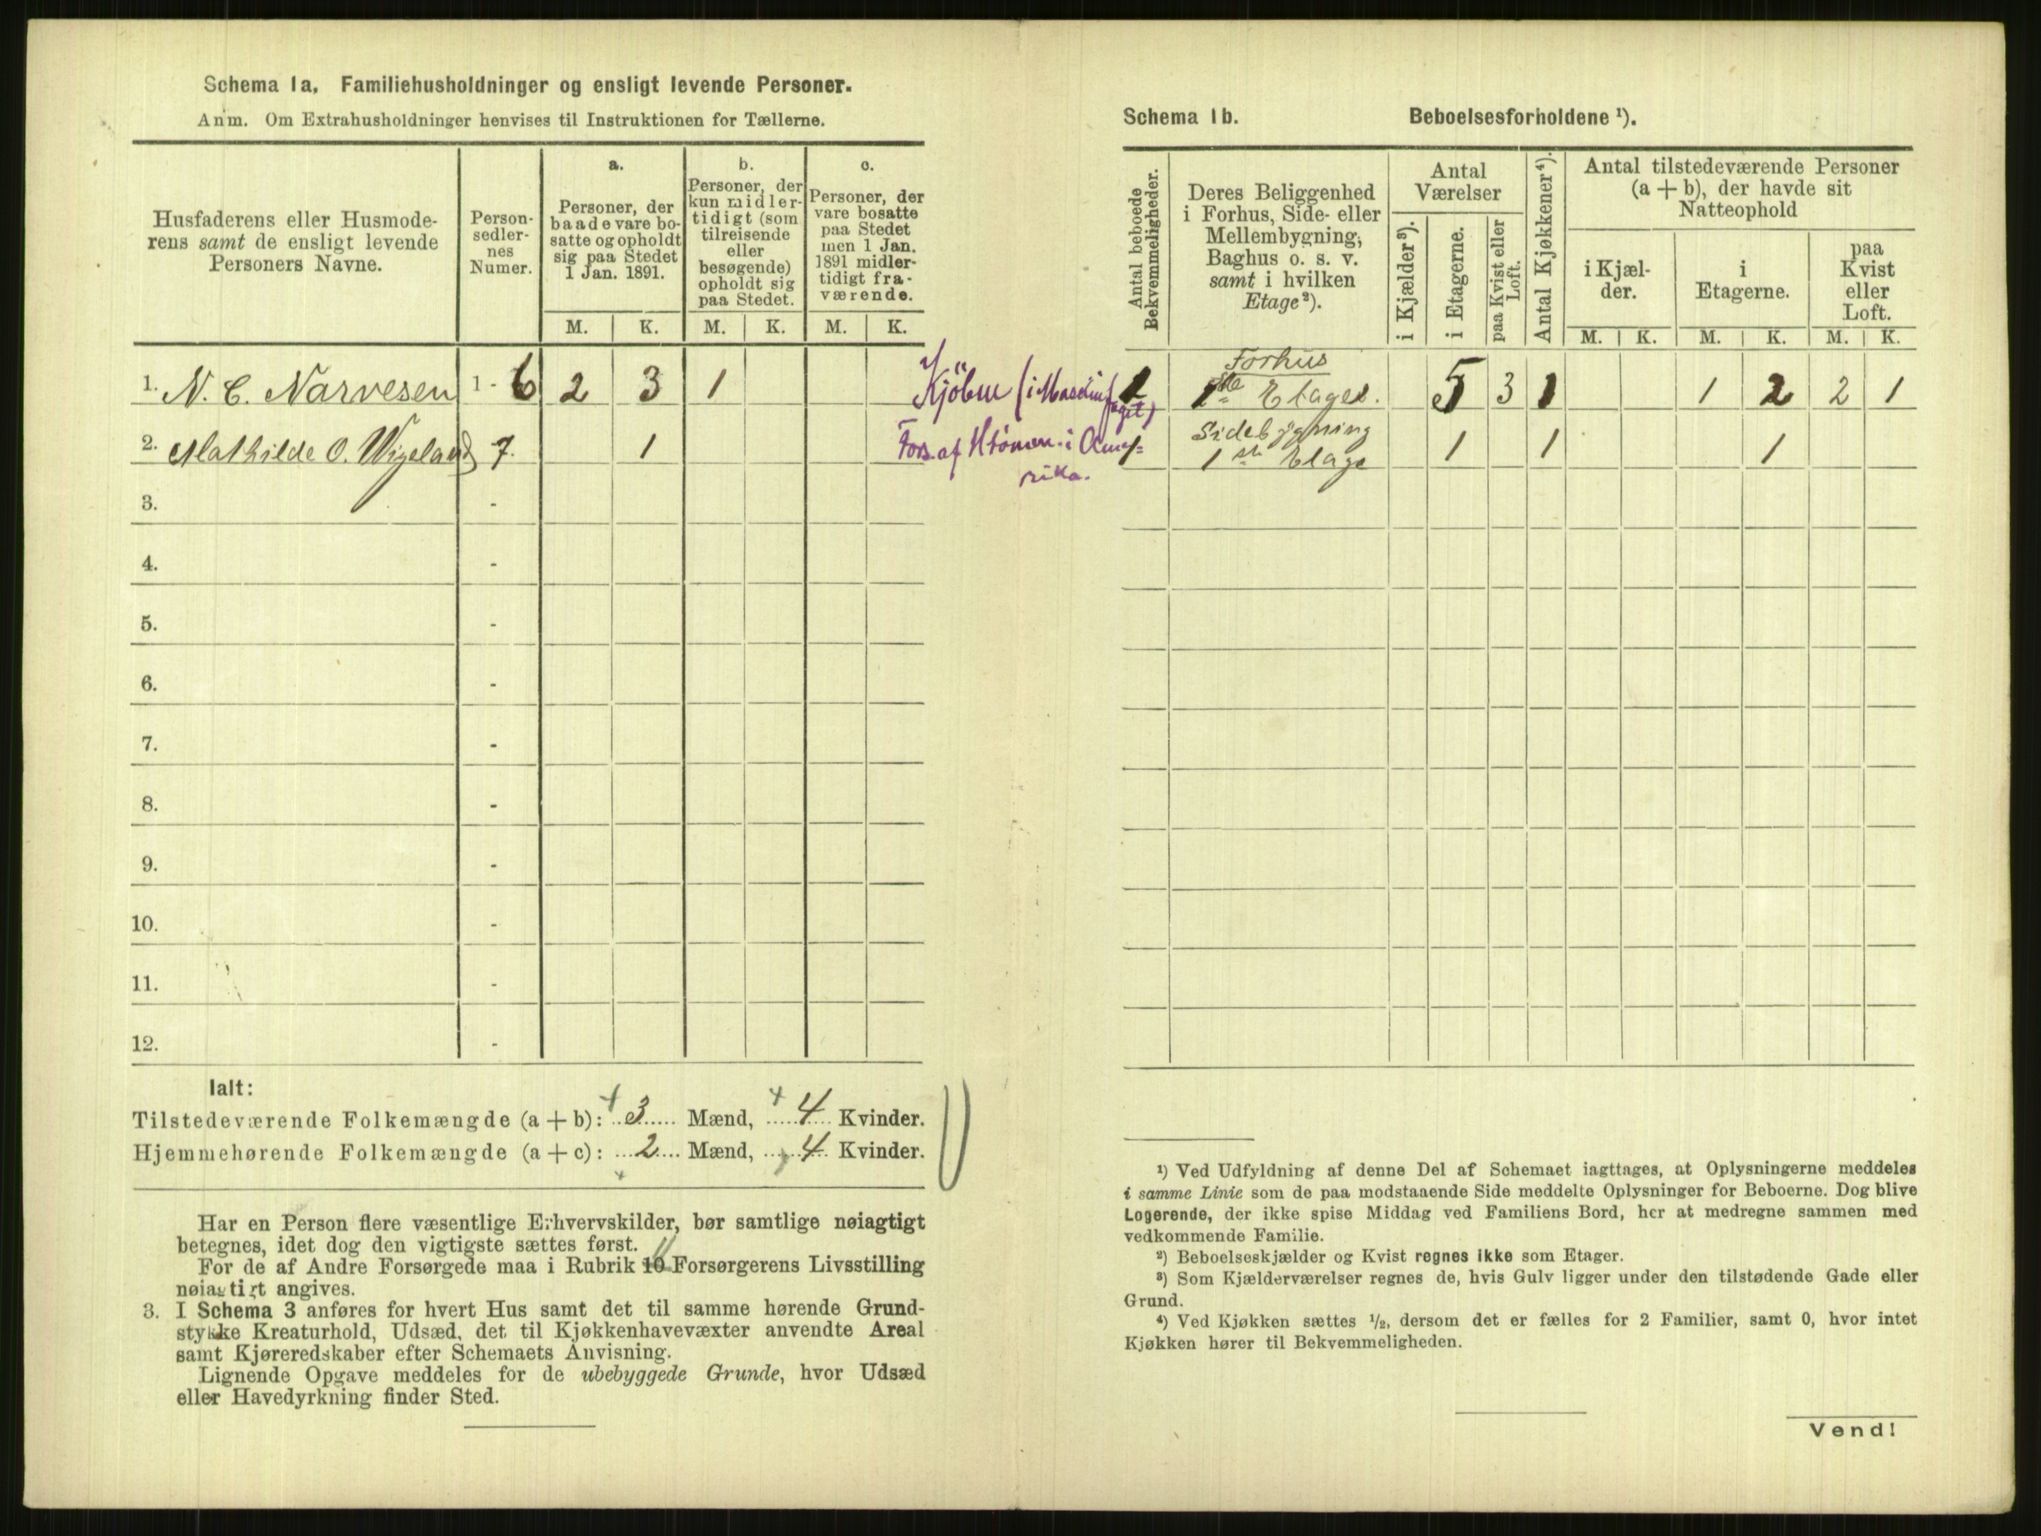 Schema 1a. Familiehusholdninger og ensligt levende Personer.
Anm. Om Extrahusholdninger henvises til Instruktionen for Tællerne.
Husfaderens eller Husmode-
rens samt de ensligt levende
Personers Navne.
Person-
sedler-
nes
Numer.
a.
Personer, der
baade vare bo-
satte og opholdt
sig paa Stedet
1 Jan. 1891.
b.
Personer, der
kun midler-
tidigt (som
tilreisende
eller
besøgende)
opholdt sig
paa Stedet.
c.
Personer, der
vare bosatte
paa Stedet
men 1 Jan.
1891 midler-
tidigt fra-
værende.
M. K. M. K. M. K.
1. N. C. Narvesen 1 - 6 2 3 1
2. Mathilde O. Wigeland 7. 1
3. -
4. -
5. -
6. -
7. -
8. -
9. -
10. -
11. -
12. -
Ialt:
Tilstedeværende Folkemængde (a + b): 3 Mænd, 4 Kvinder.
Hjemmehørende Folkemængde (a + c): 2 Mænd, 4 Kvinder.
Har en Person flere væsentlige Erhvervskilder, bør samtlige nøiagtigt
betegnes, idet dog den vigtigste sættes først.
For de af Andre Forsørgede maa i Rubrik 10 Forsørgerens Livsstilling
nøiagtigt angives.
3. I Schema 3 anføres for hvert Hus samt det til samme hørende Grund-
stykke Kreaturhold, Udsæd, det til Kjøkkenhavevæxter anvendte Areal
samt Kjøreredskaber efter Schemaets Anvisning.
Lignende Opgave meddeles for de ubebyggede Grunde, hvor Udsæd
eller Havedyrkning finder Sted.
Kjöbm (i
Fors. af i Ame-
rika.
Schema 1b. Beboelsesforholdene ¹).
Antal beboede
Bekvemmeligheder.
Deres Beliggenhed
i Forhus, Side- eller
Mellembygning,
Baghus o. s. v.
samt i hvilken
Etage ²).
Antal
Værelser
i Kjælder ³).
i Etagerne.
paa Kvist eller
Loft.
Antal Kjøkkener ⁴).
Antal tilstedeværende Personer
(a + b), der havde sit
Natteophold
i Kjæl-
der.
i
Etagerne.
paa
Kvist
eller
Loft.
M. K. M. K. M. K.
Forhus
1 1ste Etages. 5 3 1 1 2 2 1
Sidebygning
1 1ste Etage 1 1 1
¹) Ved Udfyldning af denne Del af Schemaet iagttages, at Oplysningerne meddeles
i samme Linie som de paa modstaaende Side meddelte Oplysninger for Beboerne. Dog blive
Logerende, der ikke spise Middag ved Familiens Bord, her at medregne sammen med
vedkommende Familie.
²) Beboelseskjælder og Kvist regnes ikke som Etager.
³) Som Kjælderværelser regnes de, hvis Gulv ligger under den tilstødende Gade eller
Grund.
⁴) Ved Kjøkken sættes ½, dersom det er fælles for 2 Familier, samt 0, hvor intet
Kjøkken hører til Bekvemmeligheden.
Vend!